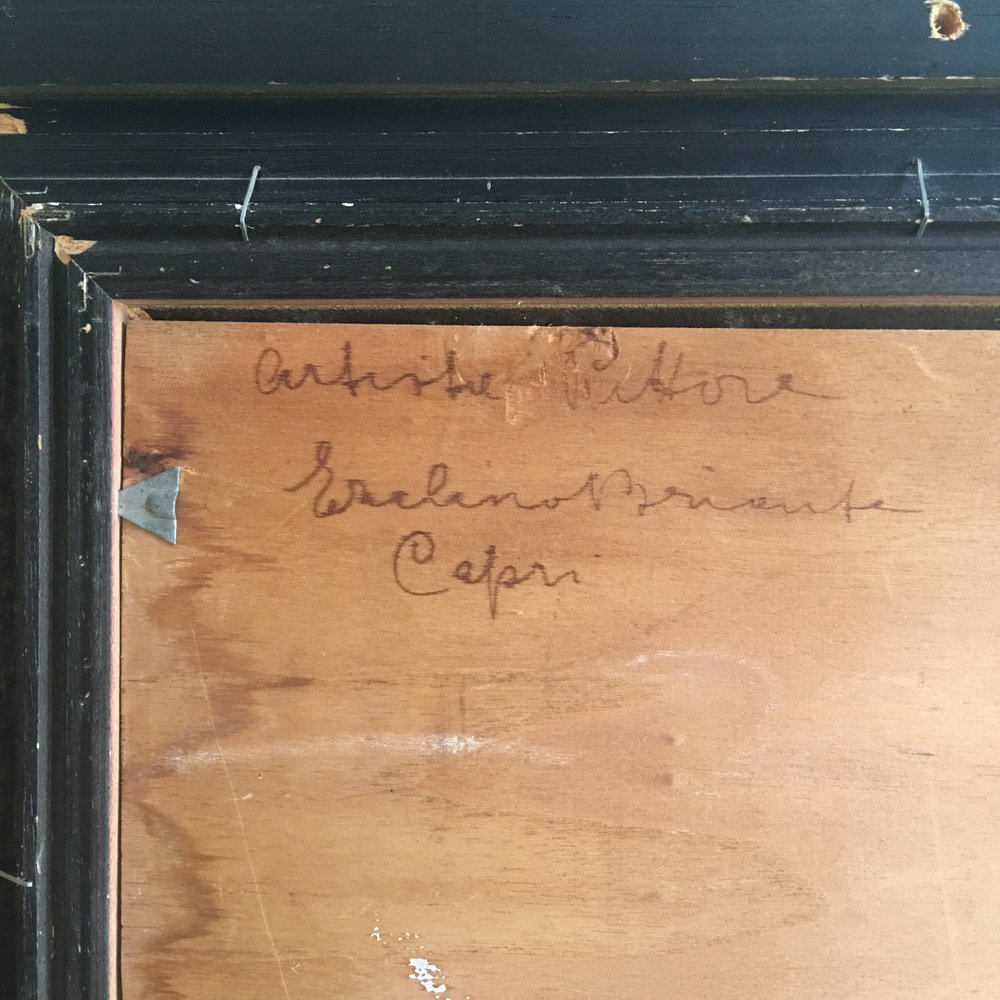 Artista Pittore
Ezelino Briante
Capri